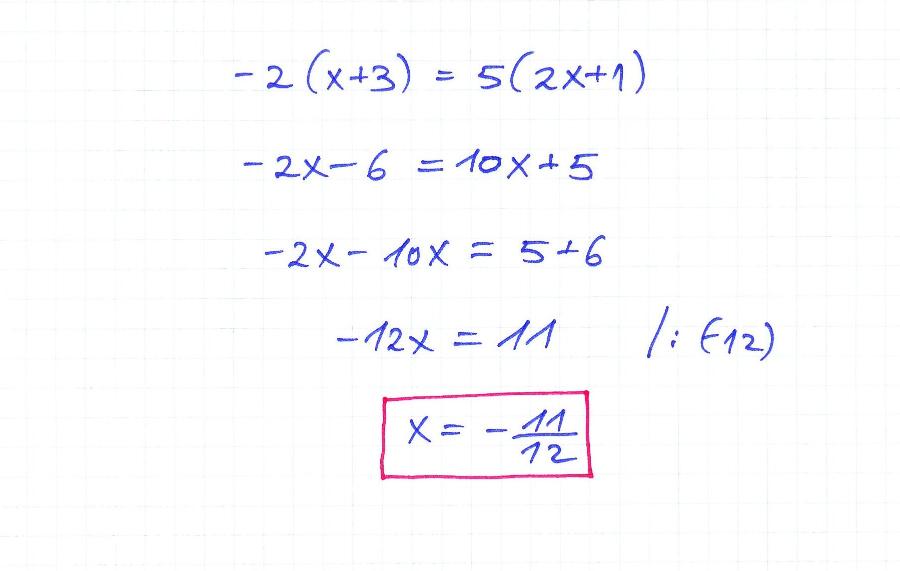 -2(x+3) = 5(2x+1)
-2x-6 = 10x+5
-2x-10x = 5+6
-12x = 11 /: (-12)
x = -11/12